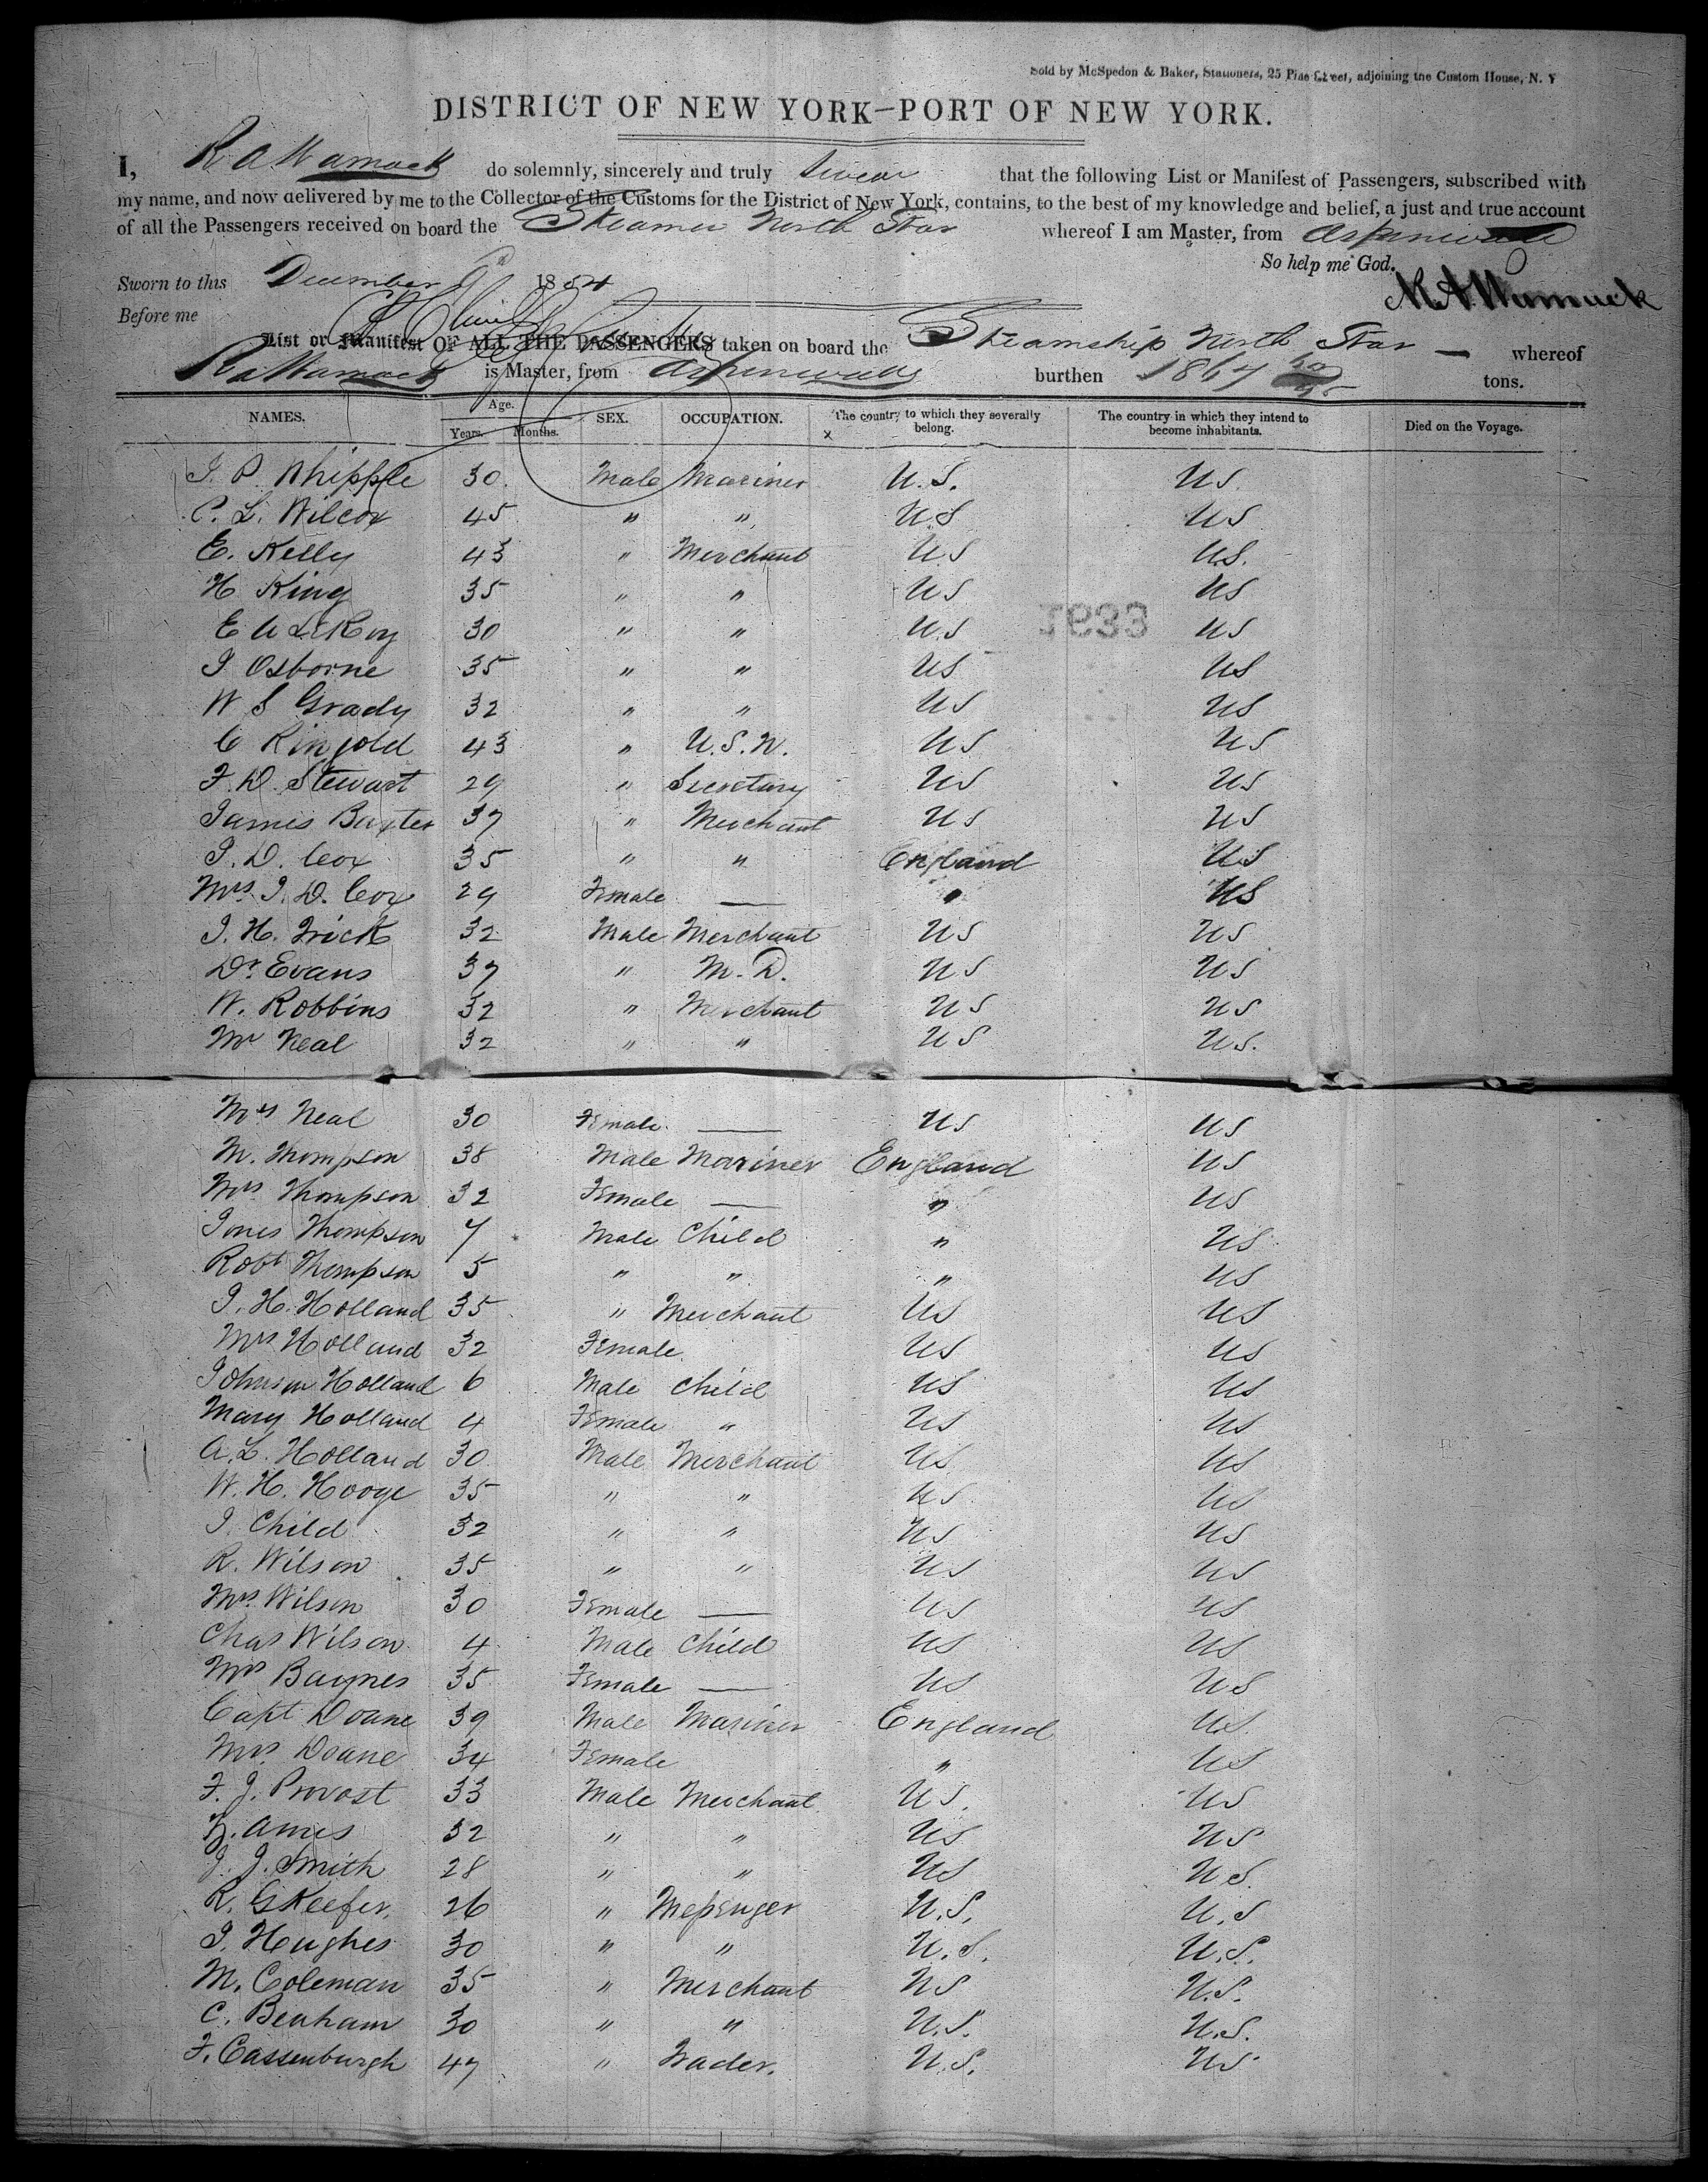 Sold by McSpedon & Baker, Stationers, 25 Pine Street, adjoining the Custom House, N. Y
DISTRICT OF NEW YORK—PORT OF NEW YORK.
I, R A Wamack do solemnly, sincerely and truly swear that the following List or Manifest of Passengers, subscribed with
my name, and now delivered by me to the Collector of the Customs for the District of New York, contains, to the best of my knowledge and belief, a just and true account
of all the Passengers received on board the Steamer North Star whereof I am Master, from Aspinwall
So help me God.
Sworn to this December 1854
Before me
List or Manifest OF ALL THE PASSENGERS taken on board the Steamship North Star — whereof
is Master, from Aspinwall burthen 1867 tons.
NAMES. Age. Years. Months. SEX. OCCUPATION. The country to which they severally belong. The country in which they intend to become inhabitants. Died on the Voyage.
J. P. Whipple 30. Male Mariner U.S. US.
C. L. Wilcox 45 " " US US
E. Kelly 43 " Merchant U.S U.S.
H King 35 " " US US
1633
E A LeRoy 30 " " U.S US
J Osborne 35 " " US US
W S Grady 32 " " US US
C Ringold 43 " U.S.N. US US
F. D. Stewart 29 " Secretary US US
James Baxter 37 " Merchant US US
J. D. Cox 35 " " England US
Mrs. J. D. Cox 29 Female — " US
J. H. Trick 32 Male Merchant US US
Dr. Evans 37 " M.D. US US
W. Robbins 32 " Merchant US US
Mr Neal 32 " " US US.
Mrs Neal 30 Female — US US
M. Thompson 38 Male Mariner England US
Mrs Thompson 32 Female — " US
Jones Thompson 7 Male Child " US
Robt Thompson 5 " " " US
J. H. Holland 35 " Merchant US US
Mrs Holland 32 Female US US
Johnson Holland 6 Male Child US US
Mary Holland 4 Female " US US
A. L. Holland 30 Male Merchant US US
W. H. Hooge 35 " " US US
J. Child 32 " " US US
R. Wilson 35 " " US US
Mrs. Wilson 30 Female — US US
Chas Wilson 4 Male Child US US
Mrs Baynes 35 Female — US US
Capt Doane 39 Male Mariner England US.
Mrs. Doane 34 Female " US
F. J. Provost 33 Male Merchant US. US
Ames 32 " " US US
J. J. Smith 28 " " US US.
R. G Keefer. 26 " Messenger U.S. U.S
J. Hughes 30 " " U.S. U.S.
M. Coleman 35 " Merchant US U.S.
C. Benham 30 " " U.S. U.S.
F. Cassenburgh 47 " Trader. U.S. US